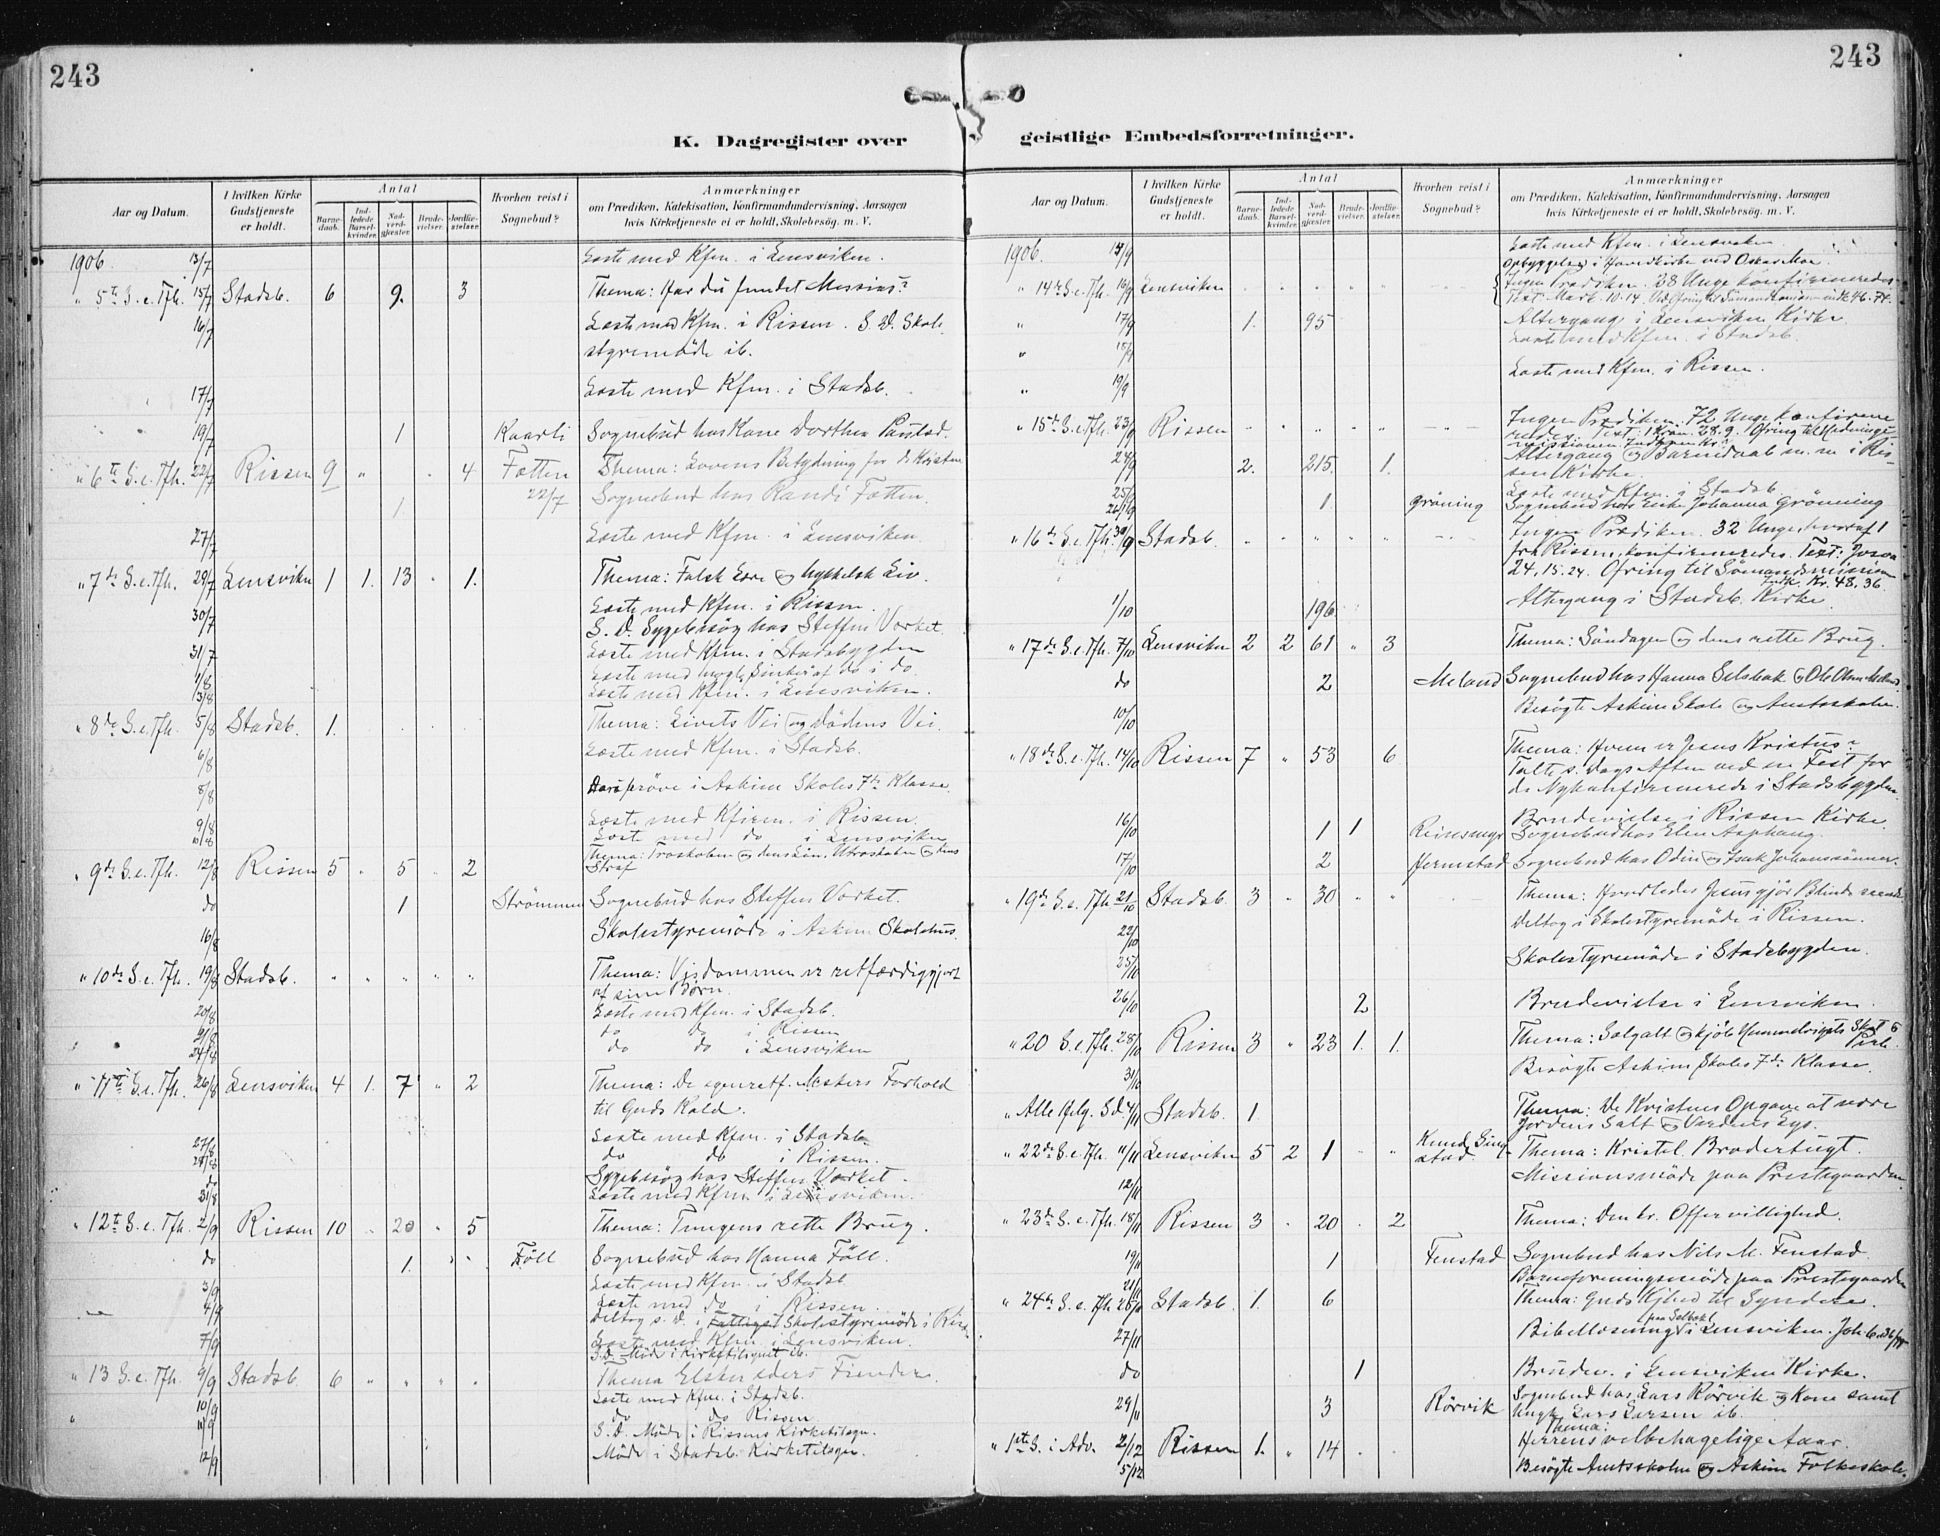 243
243
K. Dagregister over geistlige Embedsforretninger.
Aar og Datum.
I hvilken Kirke Gudstjeneste er holdt.
Antal
Barnedaab.
Indledede Barselkvinder.
Nadverdgjester.
Brudevielser.
Jordfæstelser.
Hvorhen reist i Sognebud?
Anmærkninger
om Prædiken, Katekisation, Konfirmandundervisning, Aarsagen
hvis Kirketjeneste ei er holdt, Skolebesøg. m. V.
1906. 13/7 Læste med Kfm. i Lensviken.
" 5te S. e. Tfh. 15/7 Stadsb. 6 9. 3 Thema: Har du fundet Messias?
16/7 Læste med Kfm. i Rissen. S. D. Skole
styremöde ib.
17/7 Læste med Kfm. i Stadsb.
19/7 1 Kaarli Sognebud hos Kone Dorthea
" 6te S. e. Tfh. 22/7 Rissen 9 " " 4 Fætten Thema: Lovens Betydning for de Kristne
22/7 1 Sognebud hos Randi Fætten.
27/7 Læste med Kfm. i Lensviken.
" 7de S. e. Tfh. 29/7 Lensviken 1 1. 13 " 1. Thema: Falsk Lære og hykkelsk Liv.
30/7 Læste med Kfm. i Rissen.
S. D. Sygebesøg hos Steffen Vorket.
31/7 Læste med Kfm. i Stadsbygden
1/8 Læste med nogle af do i do.
3/8 Læste med Kfm. i Lensviken.
" 8de S. e. Tfh. 5/8 Stadsb. 1. Thema: Livets Vei og Dödens Vei.
6/8 Læste med Kfm. i Stadsb.
8/8 Aarsprøve i Askim Skoles 7de Klasse.
9/8 Læste med Kfirm. i Rissen.
10/8 Læste med do i Lensviken
" 9de S. e. Tfh. 12/8 Rissen 5 " 5 " 2 Thema: Troskaben og dens Løn, Utroskaben og dens
Straf
do 1 Strömmen Sognebud hos Steffen Vorket.
16/8 Skolestyremöde i Askim Skolehus.
" 10de S. e. Tfh. 19/8 Stadsb. " " " " " Thema: Visdommen er retfærdiggjort
af sine Børn.
20/8 Læste med Kfm. i Stadsb.
21/8 do do i Rissen
24/8 do do i Lensviken
" 11te S. e. Tfh. 26/8 Lensviken 4 1. 7 " 2 Thema: De egenretf. Mesters Forhold
til Guds Kald.
27/8 Læste med Kfm. i Stadsb.
28/8 do do i Rissen.
do Sygebesøg hos Steffen Vorket.
31/8 Læste med Kfm. i Lensviken.
" 12te S. e. Tfh. 2/9 Rissen 10 " 20 " 5 Thema: Tungens rette Brug.
do 1. Föll Sognebud hos Hanna Föll.
3/9 Læste med Kfm. i Stadsb.
4/9 Læste med do i Rissen.
Deltog s. D. i Skolestyremöde i
7/9 Læste med Kfm. i Lensviken.
S. D. Möde i Kirketilsynet ib.
" 13 S. e. Tfh. 9/9 Stadsb. 6 " " " " Thema Elsker eders Fiender.
10/9 Læste med Kfm. i Stadsb.
" 11/9 do do Rissen
S. D. Möde i Rissens Kirketilsyn.
12/9 Möde i Stadsb. Kirketilsyn.
Aar og Datum.
I hvilken Kirke Gudstjeneste er holdt.
Antal
Barnedaab.
Indledede Barselkvinder.
Nadverdgjester.
Brudevielser.
Jordfæstelser.
Hvorhen reist i Sognebud?
Anmærkninger
om Prædiken, Katekisation, Konfirmandundervisning, Aarsagen
hvis Kirketjeneste ei er holdt, Skolebesøg. m. V.
1906. 14/9 Læste med Kfm. i Lensviken.
Opbyggelse i Hovedkirke ved Oskar Moe.
" 14de S. e. Tfh. 16/9 Lensviken " " " " " Ingen Prædiken. 28 Unge konfirmeredes
Text Mark. 10.14.
" 17/9 1. 95 Altergang i Lensviken Kirke.
" 18/9 Læste med Kfm. i Stadsb.
" 19/9 Læste med Kfm. i Rissen.
" 15de S. e. Tfh. 23/9 Rissen " " " " " Ingen Prædiken. 72 Unge konfirme
redes. Text: 1 Krøn. 28.9. Ofring til Hedninge-
missionen.
24/9 2. 215. 1. Altergang og Barnedaab m. m i Ris-
sen Kirke.
25/9 Læste med Kfm. i Stadsb.
26/9 1. Gröning Sognebud hos Enke Johanna Grönning
" 16de S. e. Tfh. 30/9 Stadsb. " " " " " Ingen Prædiken. 32 Unge, hvoraf 1
fra Rissen, konfirmeredes. Text: Josva
24, 15. 24. Ofring til Sömandsmission
Indk. Kr. 48.36.
1/10 196 Altergang i Stadsb. Kirke.
" 17de S. e. Tfh. 7/10 Lensviken 2 2 61 " 3 Thema: Söndagen og dens rette Brug.
do 2 Meland Sognebud hos Hanna Selsbak og Ole Olsen Meland.
10/10 Besøgte Askim Skole og Amtsskolen.
" 18de S. e. Tfh. 14/10 Rissen 7 " 53 6 Thema: Hvem er Jesus Kristus?
Talte s. Dags Aften ved en Fest for
de Nykonfirmerede i Stadsbygden.
16/10 1 1 Reinsmyr Brudevielse i Rissen Kirke.
Sognebud hos Elen Asphaug.
17/10 2 Hermstad Sognebud hos Odin og Isak Johanssönner.
" 19de S. e. Tfh. 21/10 Stadsb. 3 " 30 " " Thema: Hvorledes Jesus gjør Blinde seende
22/10 Deltog i Skolestyremöde i Rissen.
25/10 Skolestyremöde i Stadsbygden.
26/10 2 Brudevielse i Lensviken.
" 20 S. e. Tfh. 28/10 Rissen 3 " 23 1. 1. Thema: Salgalt og kjöb Himmerigets Skat &
Perle.
31/10 Besøgte Askim Skoles 7de Klasse.
" Alle Helg. S. d. 4/11 Stadsb. 1. Thema: De Kristnes Opgave at være
Jordens Salt og Verdens Lys.
" 22de S. e. Tfh. 11/11 Lensviken 5 2 1 " " Thema: Kristel. Brodertugt.
12/11 Missionsmöde paa Prestegaarden.
" 23de S. e. Tfh. 18/11 Rissen 3 " 20 " 2 Thema: Den kr. Offervillighed.
19/11 1 Fenstad Sognebud hos Nils M. Fenstad.
21/11 Barneforeningsmöde paa Prestegaarden
" 24de S. e. Tfh. 25/11 Stadsb. 1. 6 Thema: Guds Kjhed til Syndere.
27/11 Bibellæsning paa Selbækk i Lensviken.
do 1 Brudev. i Lensviken Kirke.
29/11 3 Rörvik Sognebud hos Lars Rörvik og Kone samt
Ungk. Lars Larsen ib.
" 1ste S. i Adv. 2/12 Rissen 1. " 14 Thema:
Herrens velbehagelige Aar.
5/12 Besøgte Amtsskolen og Askim Folkeskole.